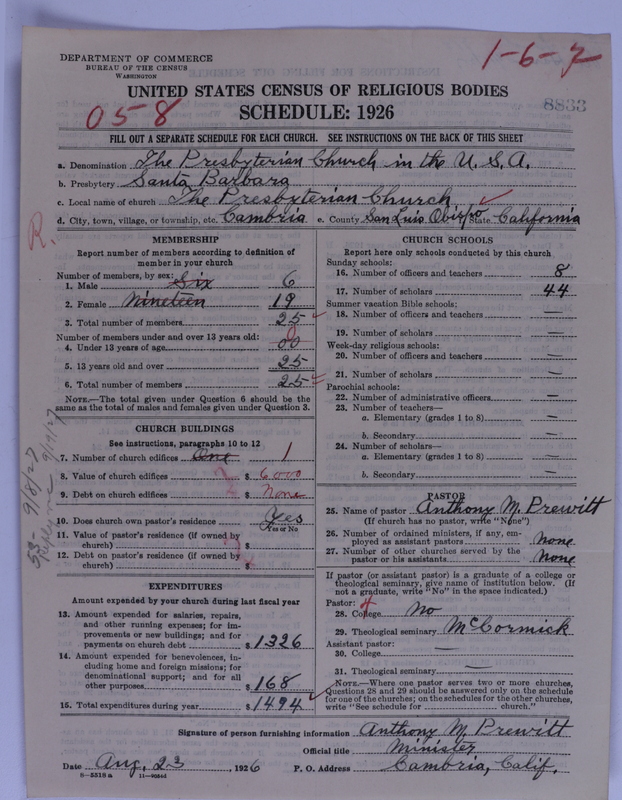 DEPARTMENT OF COMMERCE
BUREAU OF THE CENSUS
WASHINGTON
1-6-7
UNITED STATES CENSUS OF RELIGIOUS BODIES
058
SCHEDULE: 1926
8833
FILL OUT A SEPARATE SCHEDULE FOR EACH CHURCH. SEE INSTRUCTIONS ON THE BACK OF THIS SHEET
a. Denomination The Presbyterian Church in the U.S.A.
b. Presbytery Santa Barbara
c. Local name of church The Presbyterian Church
d. City, town, village, or township, etc. Cambria e. County San Luis Obispo State California
R.
MEMBERSHIP
Report number of members according to definition of
member in your church
Number of members, by sex:
1. Male Six 6
2. Female Nineteen 19
3. Total number of members 25
Number of members under and over 13 years old:
4. Under 13 years of age 00
5. 13 years old and over 25
6. Total number of members 25
NOTE.—The total given under Question 6 should be the
same as the total of males and females given under Question 3.
CHURCH BUILDINGS
See instructions, paragraphs 10 to 12
7. Number of church edifices One 1
8. Value of church edifices $ 6000
9. Debt on church edifices $ None
10. Does church own pastor's residence Yes
Yes or No
11. Value of pastor's residence (if owned by
church) $
12. Debt on pastor's residence (if owned by
church) $
53- 9/8/27
Reply rec 9/19/27
EXPENDITURES
Amount expended by your church during last fiscal year
13. Amount expended for salaries, repairs,
and other running expenses; for im-
provements or new buildings; and for
payments on church debt $ 1326
14. Amount expended for benevolences, in-
cluding home and foreign missions; for
denominational support; and for all
other purposes $ 168
15. Total expenditures during year $ 1494
CHURCH SCHOOLS
Report here only schools conducted by this church
Sunday schools:
16. Number of officers and teachers 8
17. Number of scholars 44
Summer vacation Bible schools:
18. Number of officers and teachers —
19. Number of scholars —
Week-day religious schools:
20. Number of officers and teachers —
21. Number of scholars —
Parochial schools:
22. Number of administrative officers —
23. Number of teachers—
a. Elementary (grades 1 to 8) —
b. Secondary —
24. Number of scholars—
a. Elementary (grades 1 to 8) —
b. Secondary —
PASTOR
25. Name of pastor Anthony M. Prewitt
(If church has no pastor, write "None")
26. Number of ordained ministers, if any, em-
ployed as assistant pastors None
27. Number of other churches served by the
pastor or his assistants None
If pastor (or assistant pastor) is a graduate of a college or
theological seminary, give name of institution below. (If
not a graduate, write "No" in the space indicated.)
Pastor:
28. College No
29. Theological seminary McCormick
Assistant pastor:
30. College —
31. Theological seminary —
NOTE.—Where one pastor serves two or more churches,
Questions 28 and 29 should be answered only on the schedule
for one of the churches; on the schedules for the other churches,
write "See schedule for church."
Signature of person furnishing information Anthony M. Prewitt
Official title Minister
Date Aug. 23, 1926 P. O. Address Cambria, Calif.
8—5518a 11—9584d